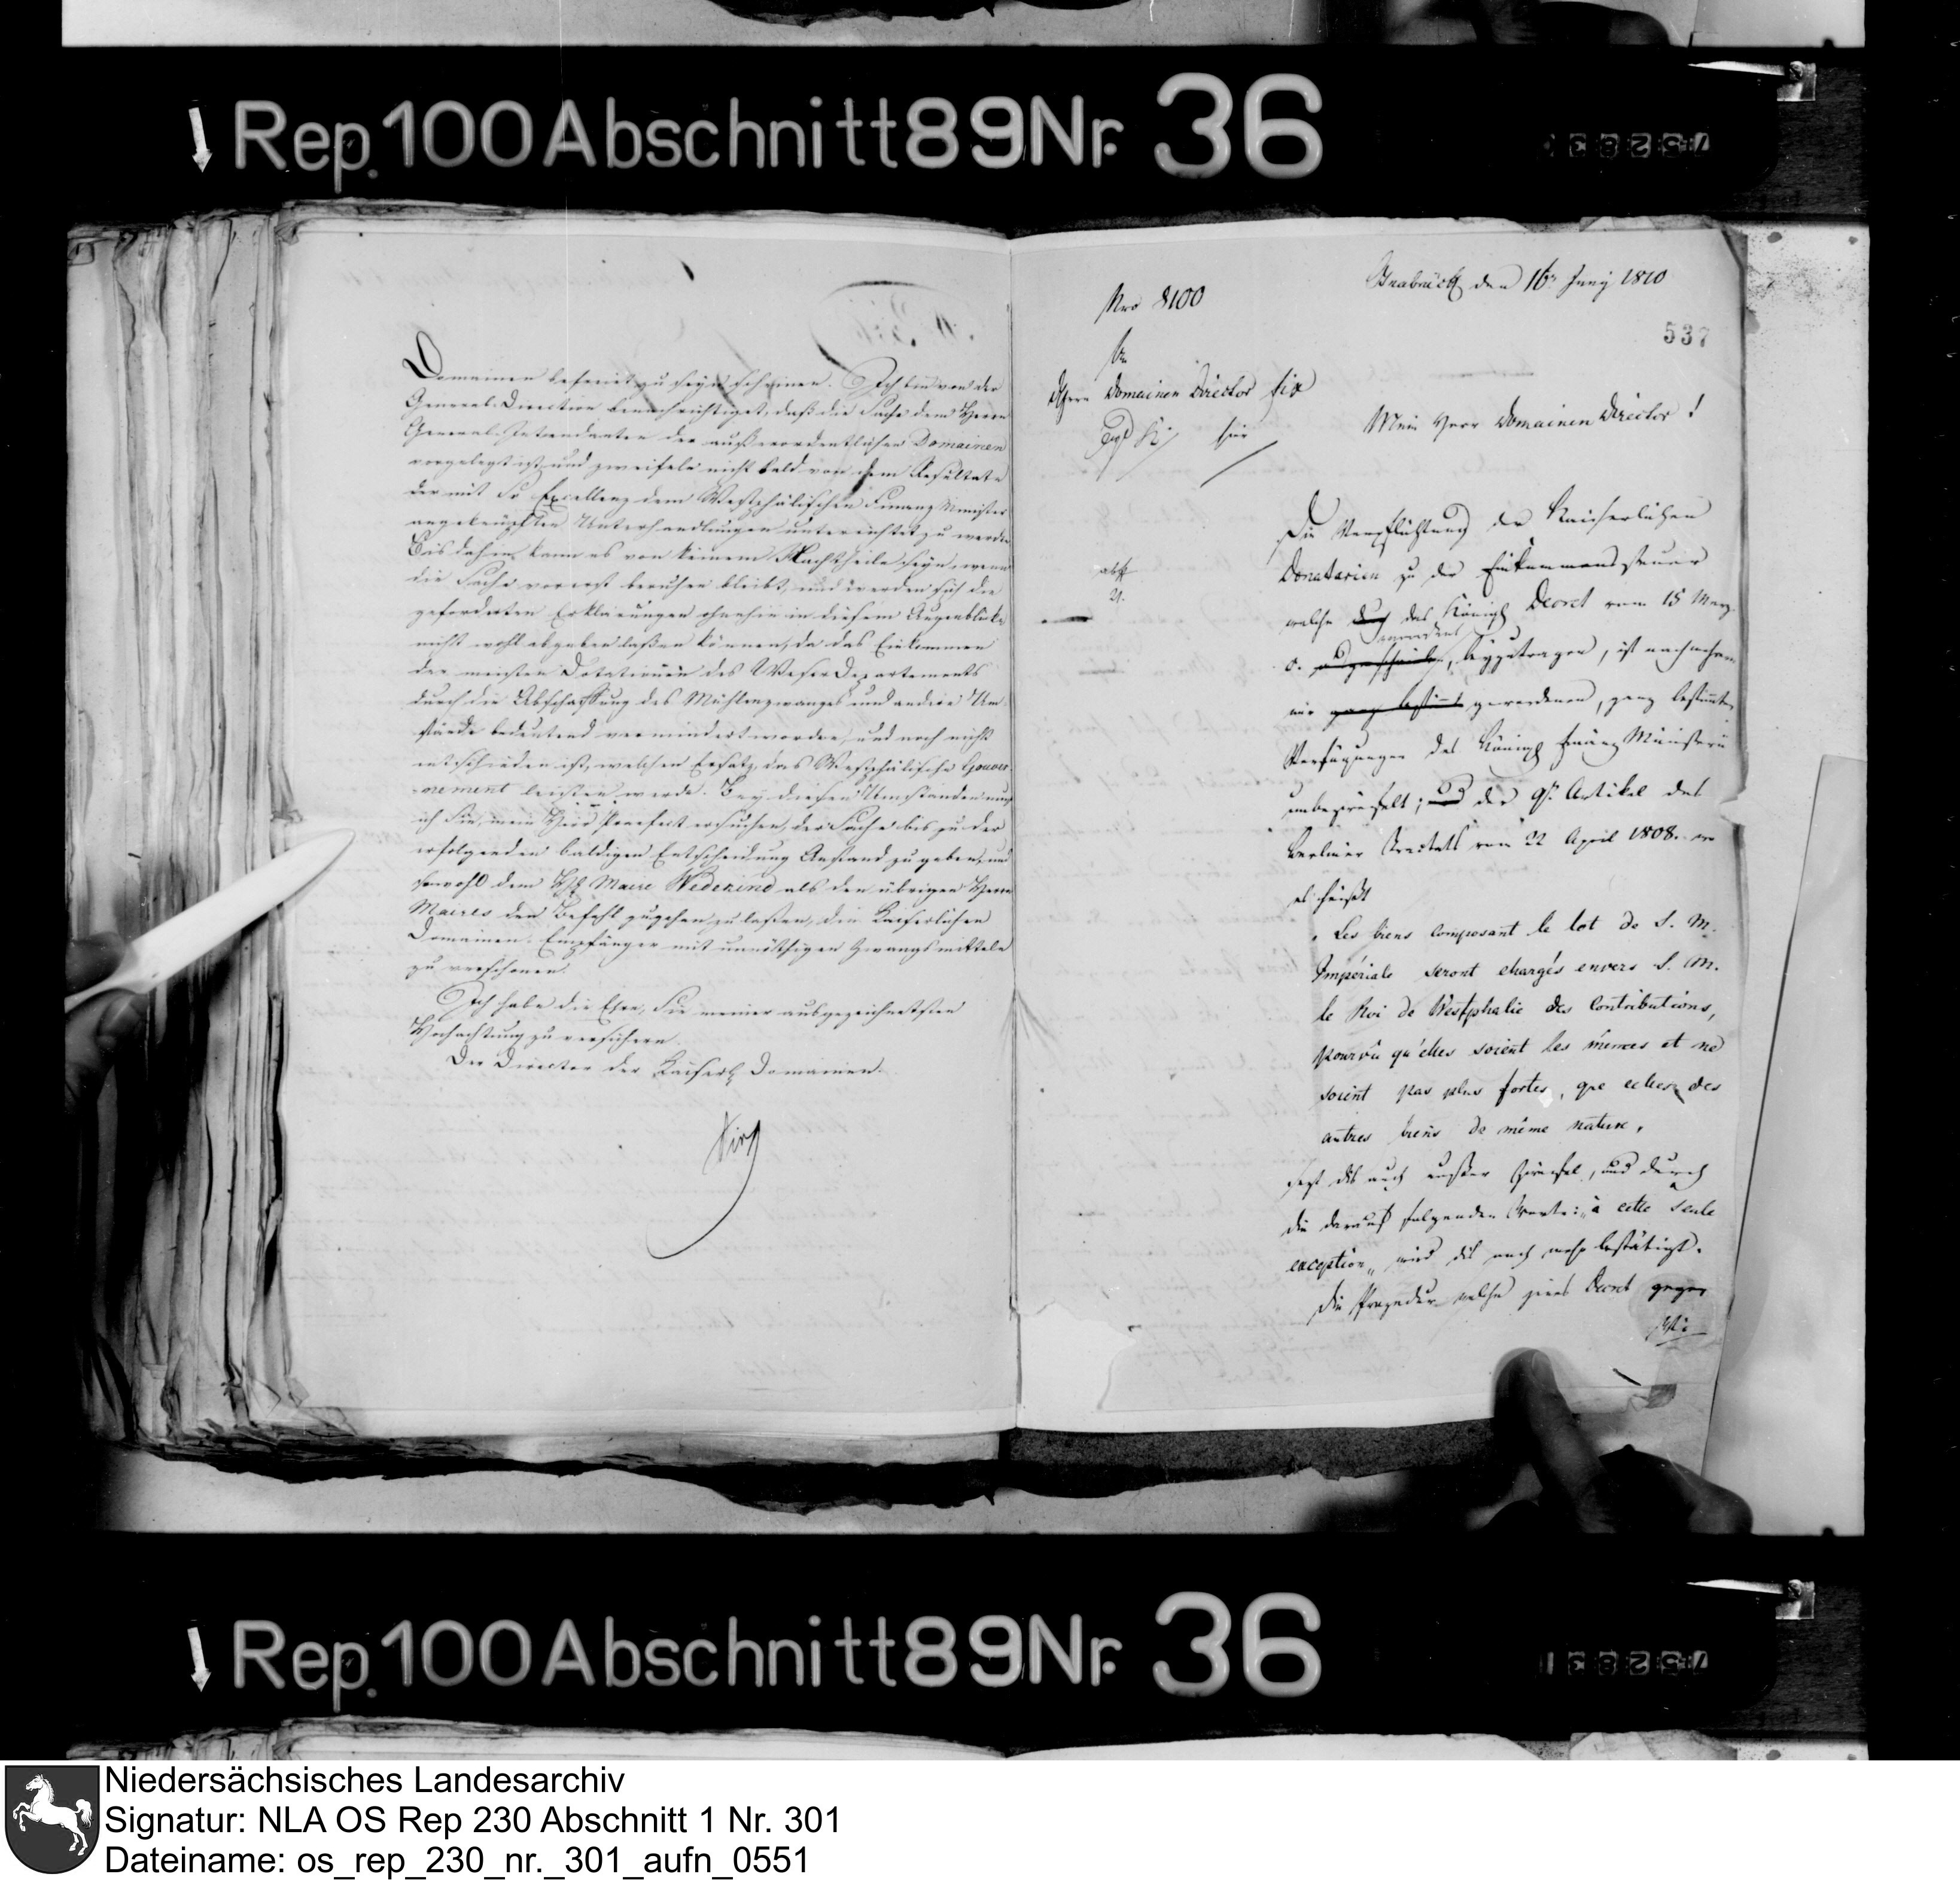 Rep. 100 Abschnitt 89 Nr. 36
75283
Domainen befreiet zu seyn scheinen. Ich bin von der
General-Direction benachrichtiget, daß die Sache dem Herrn
General-Intendanten der außerordentlichen Domainen
vorgelegt ist, und zweifele nicht bald von dem Resultate
der mit Sr Excellenz dem Westphälischen Finanz Minister
angeknüpften Unterhandlungen unterrichtet zu werden.
Bis dahin, kann es von keinem Nachtheile seyn, wenn
die Sache vorerst beruhen bleibt, und werden sich die
geforderten Erklärungen ohnehin in diesem Augenblicke
nicht wohl abgeben laßen können, da das Einkommen
der meisten Dotationen des Weser Departements
durch die Abschaffung des Mühlenzwanges und andere Um-
stände bedeutend vermindert worden, und noch nicht
entschieden ist, welchen Ersatz das Westphälische Gouver-
nement leisten werde. Bey diesen Umständen muß
ich Sie, mein Herr Praefect ersuchen, der Sache bis zu der
erfolgenden baldigen Entscheidung Anstand zu geben, und
sowohl dem Hr Maire Wedekind als den übrigen Herrn
Maires den Befehl zugehen zu laßen, die Kaiserlichen
Domainen-Empfänger mit unnöthigen Zwangsmitteln
zu verschonen.
Ich habe die Ehre, Sie meiner ausgezeichnetsten
Hochachtung zu versichern.
Der Director der Kaiserl Domainen.
Osnabrück den 16n Juny 1810
Nro 8100
537
An
Herrn Domainen Director
hier
Mein Herr Domainen Director!
Die Verpflichtung der Kaiserlichen
Donatarien zu der Einkommensteuer
welche durch das Königl Decret vom 15 März
beyzutragen, ist nach
mir ganz bestimmt gewordenen, ganz bestimmten
Verfügungen des Königl Finanz Ministers
unbezweifelt; und der 9te Artikel des
Berliner Tractats vom 22 April 1808. wo
es heißt
"Les biens composant le lot de S. M.
Impériale seront chargés envers S. M.
le Roi de Westphalie des contributions,
pourvu qu'elles soient les mêmes et ne
soient pas plus fortes, que celles des
autres biens de même nature,
setzt dis auch außer Zweifel, und durch
die darauf folgenden Worte: "à cette seule
exception" wird dis noch mehr bestätigt.
Die Prozedur welche jenes Decret gegen
Rep. 100 Abschnitt 89 Nr. 36
75283
Niedersächsisches Landesarchiv
Signatur: NLA OS Rep 230 Abschnitt 1 Nr. 301
Dateiname: os_rep_230_nr._301_aufn_0551